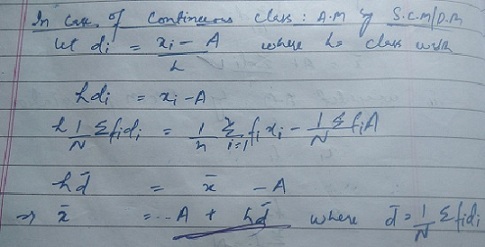 In case of continuous class : A.M by S.C.M/D.M
let di = xi - A / h where h = class width
hdi = xi - A
h 1/N Σfidi = 1/n Σ i=1 fi xi - 1/N Σ fiA
h d̄ = x̄ - A
⇒ x̄ = A + h d̄ where d̄ = 1/N Σ fidi